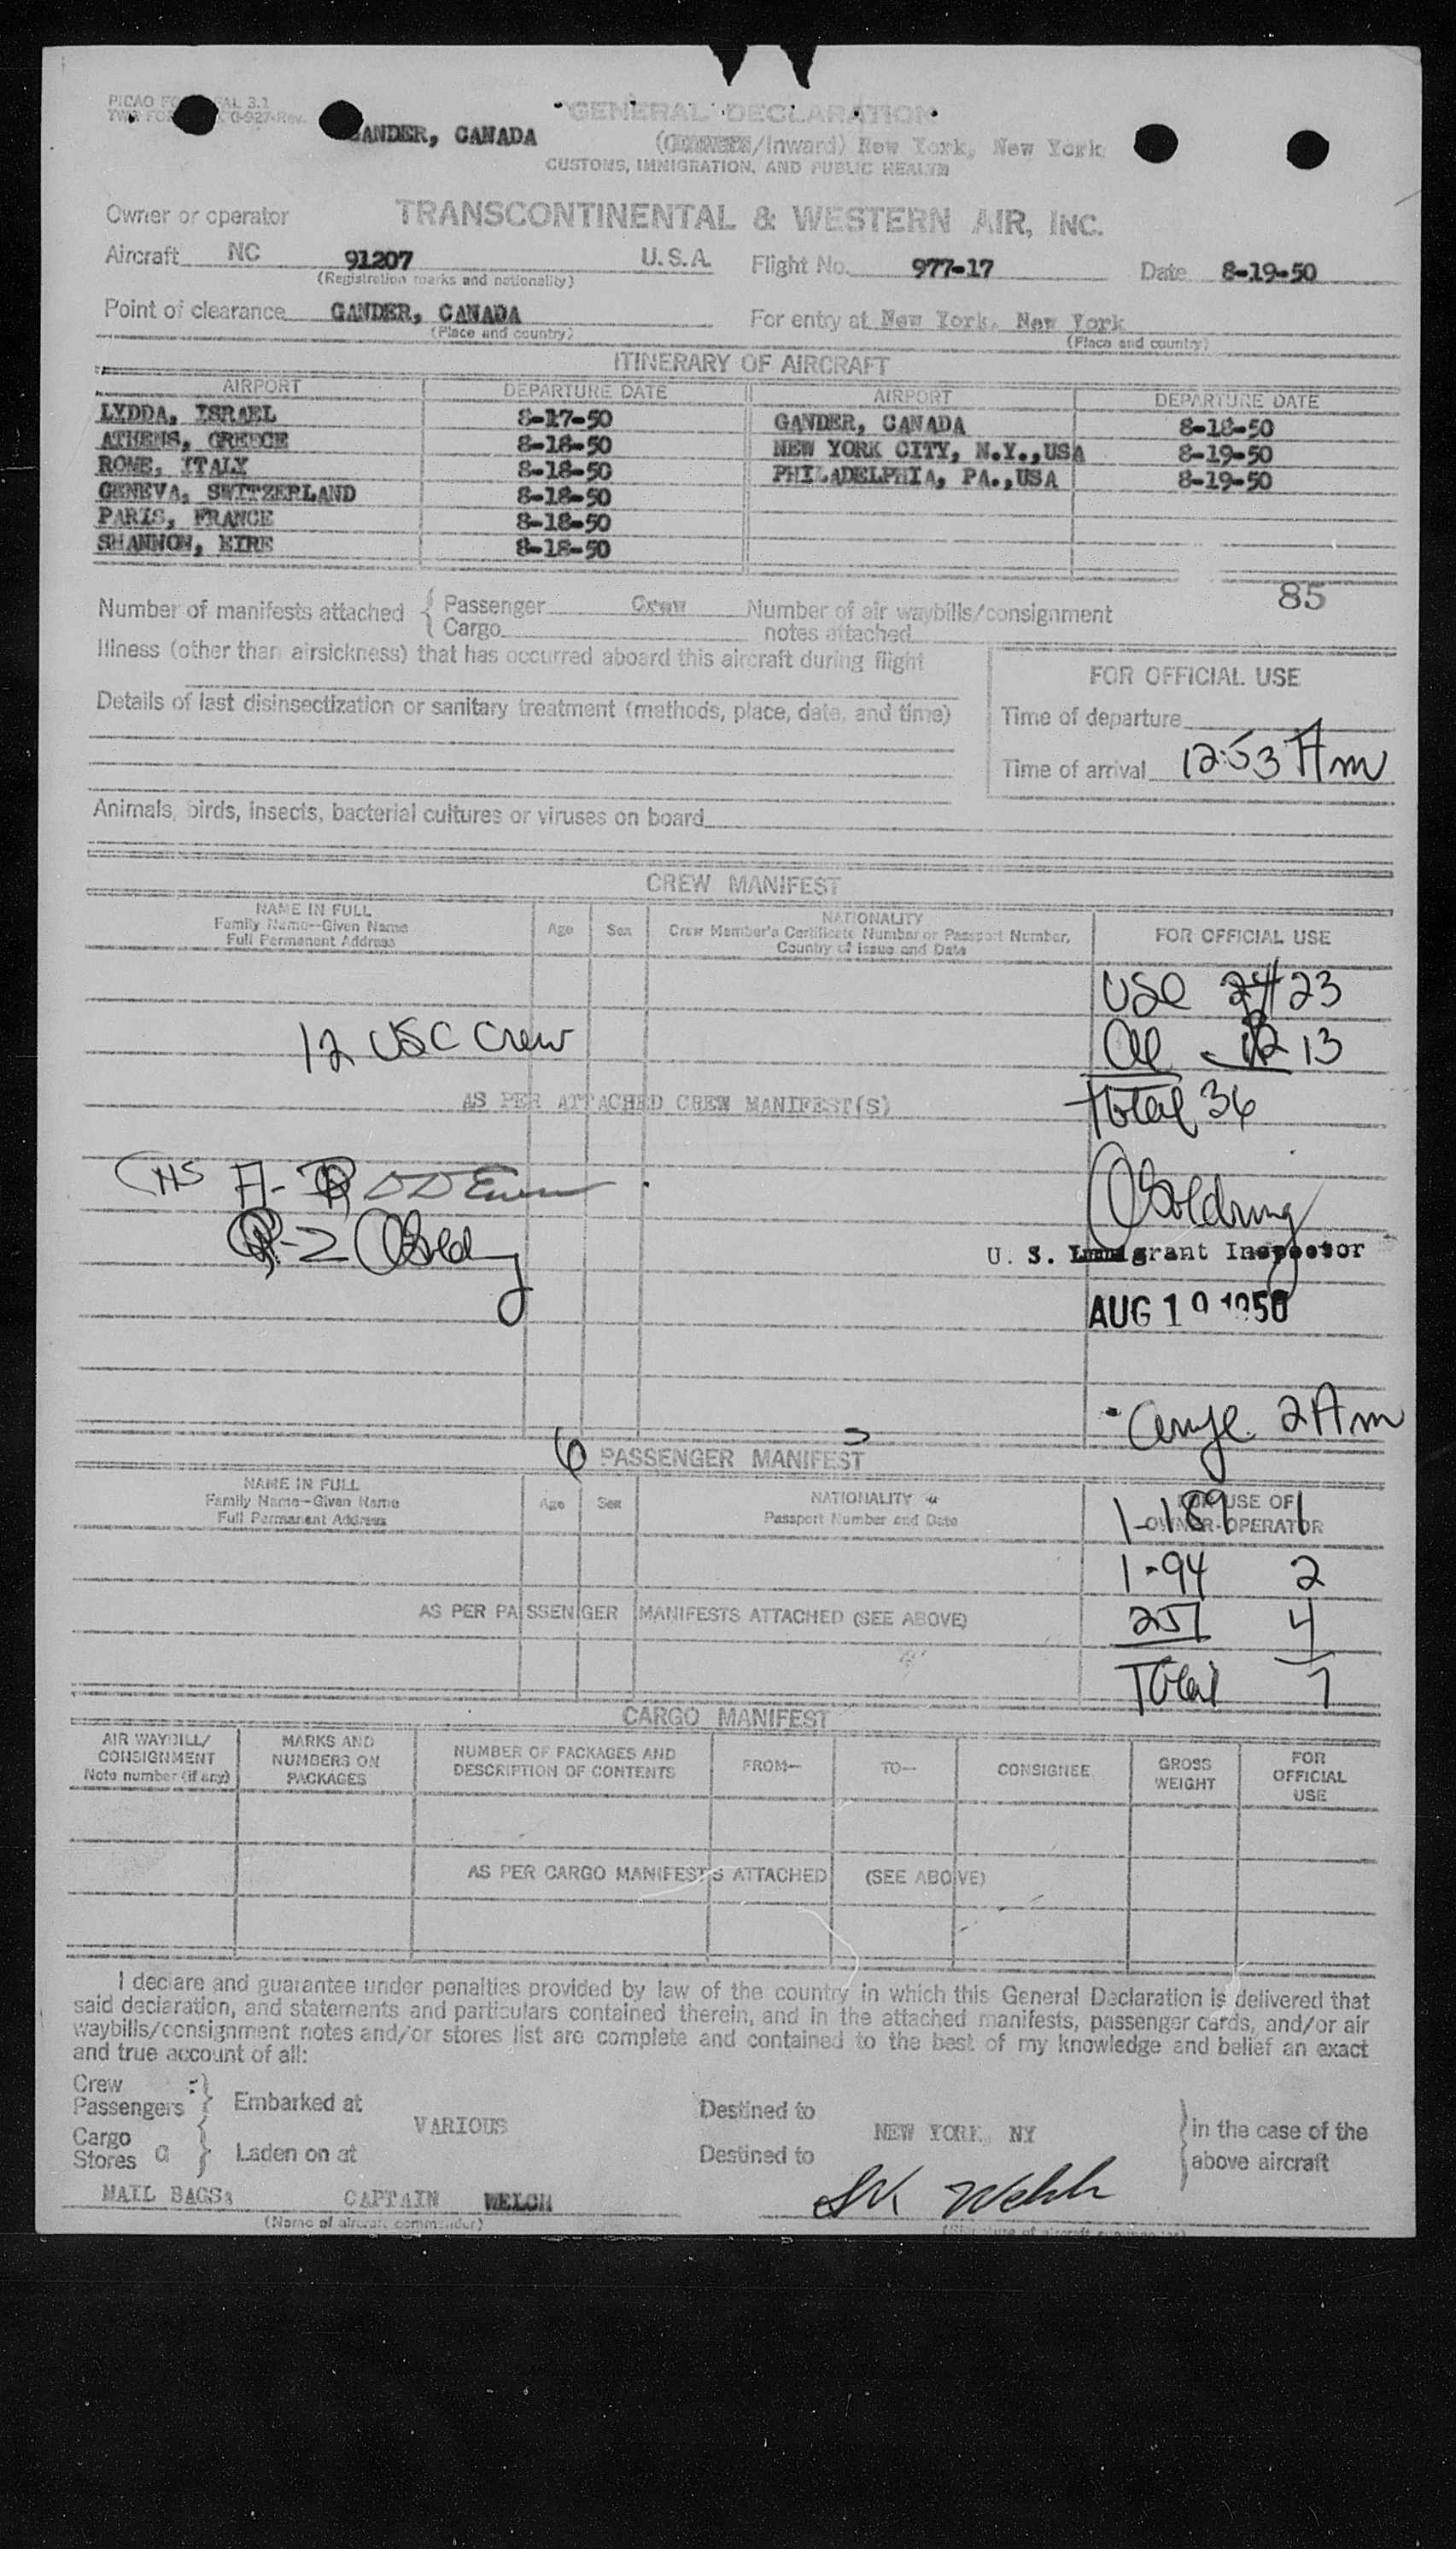 PICAO FO FAL 3.1
TWA FOR 0-927-Rev.
GANDER, CANADA
GENERAL DECLARATION
(/Inward) New York, New York
CUSTOMS, IMMIGRATION, AND PUBLIC HEALTH
Owner or operator TRANSCONTINENTAL & WESTERN AIR, INC.
Aircraft NC 91207 U.S.A. Flight No. 977-17 Date 8-19-50
(Registration marks and nationality)
Point of clearance GANDER, CANADA For entry at New York, New York
(Place and country) (Place and country)
ITINERARY OF AIRCRAFT
AIRPORT DEPARTURE DATE AIRPORT DEPARTURE DATE
LYDDA, ISRAEL 8-17-50 GANDER, CANADA 8-18-50
ATHENS, GREECE 8-18-50 NEW YORK CITY, N.Y.,USA 8-19-50
ROME, ITALY 8-18-50 PHILADELPHIA, PA.,USA 8-19-50
GENEVA, SWITZERLAND 8-18-50
PARIS, FRANCE 8-18-50
SHANNON, EIRE 8-18-50
85
Number of manifests attached { Passenger Crew Number of air waybills/consignment
Cargo notes attached
Illness (other than airsickness) that has occurred aboard this aircraft during flight
FOR OFFICIAL USE
Details of last disinsectization or sanitary treatment (methods, place, date, and time)
Time of departure
Time of arrival 12:53 Am
Animals, birds, insects, bacterial cultures or viruses on board
CREW MANIFEST
NAME IN FULL
Family Name--Given Name
Full Permanent Address
Age Sex
NATIONALITY
Crew Member's Certificate Number or Passport Number,
Country of Issue and Date
FOR OFFICIAL USE
USC 24 23
12 USC Crew
al 12 13
AS PER ATTACHED CREW MANIFEST(S)
Total 36
U. S. Immigrant Inspector
AUG 19 1950
2 Am
6 PASSENGER MANIFEST
NAME IN FULL
Family Name--Given Name
Full Permanent Address
Age Sex
NATIONALITY
Passport Number and Date
FOR USE OF
OWNER-OPERATOR
1-189 1
1-94 2
AS PER PASSENGER MANIFESTS ATTACHED (SEE ABOVE)
257 4
Total 7
CARGO MANIFEST
AIR WAYBILL/
CONSIGNMENT
Note number (if any)
MARKS AND
NUMBERS ON
PACKAGES
NUMBER OF PACKAGES AND
DESCRIPTION OF CONTENTS
FROM—
TO—
CONSIGNEE
GROSS
WEIGHT
FOR
OFFICIAL
USE
AS PER CARGO MANIFESTS ATTACHED (SEE ABOVE)
I declare and guarantee under penalties provided by law of the country in which this General Declaration is delivered that
said declaration, and statements and particulars contained therein, and in the attached manifests, passenger cards, and/or air
waybills/consignment notes and/or stores list are complete and contained to the best of my knowledge and belief an exact
and true account of all:
Crew
Passengers } Embarked at VARIOUS Destined to NEW YORK, NY } in the case of the
Cargo
Stores } Laden on at Destined to above aircraft
MAIL BAGS: CAPTAIN WELCH
(Name of aircraft commander) (Signature of aircraft commander)